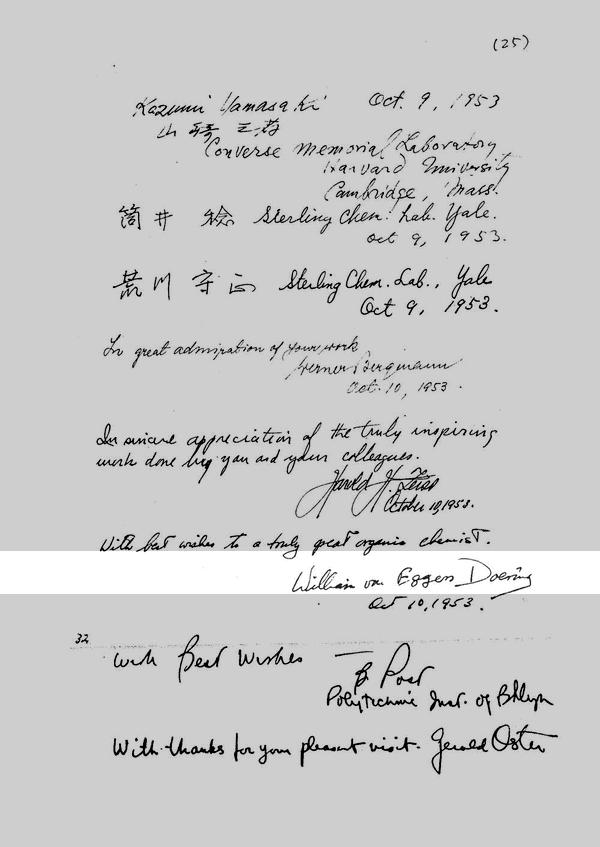 (25)
Kazumi Yamasaki Oct. 9, 1953
山崎 三
Converse Memorial Laboratory
Harvard University
Cambridge, Mass.
筒井 稔 Sterling Chem. Lab. Yale.
Oct 9, 1953.
荒川 守正 Sterling Chem. Lab., Yale
Oct 9, 1953.
In great admiration of your work
Werner Bergmann
Oct. 10, 1953.
In sincere appreciation of the truly inspiring
work done by you and your colleagues.
Harold H.
October 10, 1953.
With best wishes to a truly great organic chemist.
William von Eggers Doering
Oct 10, 1953.
32
With Best Wishes — B Post
Polytechnic Inst. of Bklyn
With thanks for your pleasant visit. Gerald Oster